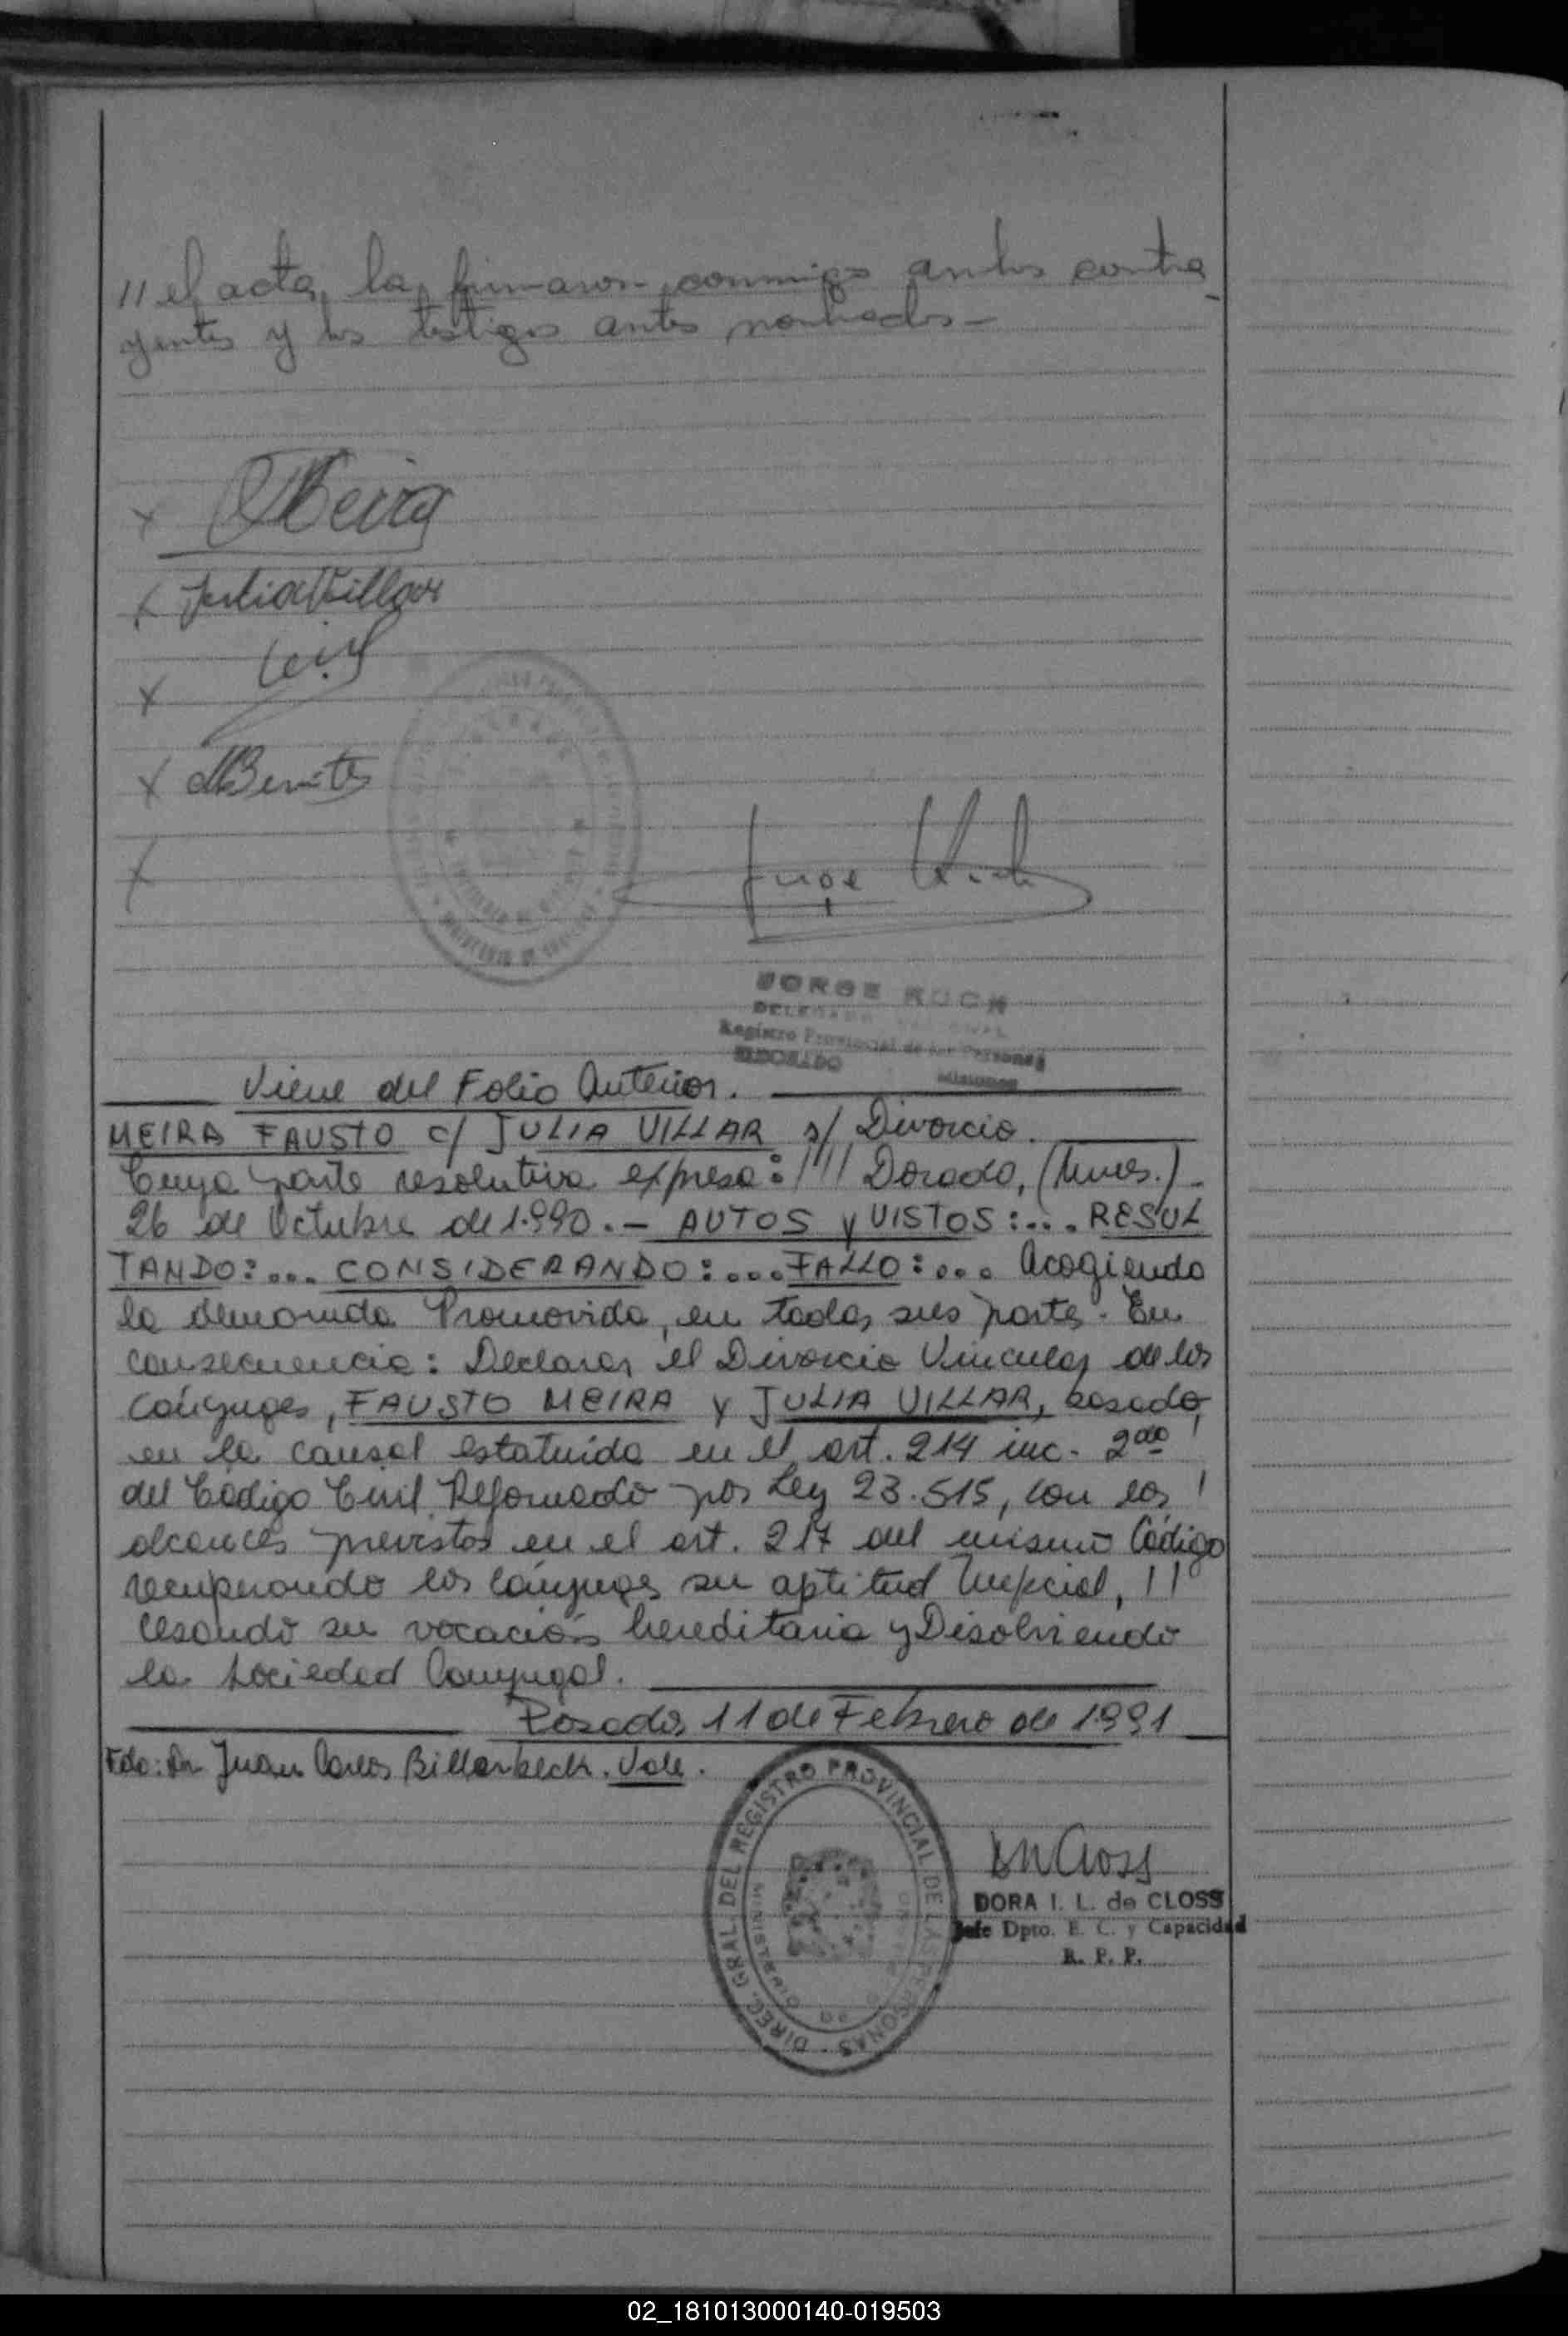 // el acta, la firmaron conmigo ambos contra
yentes y los testigos antes nombrados —
x Meira
x Julia Villar
x
x Benites
x
Jorge Koch
JORGE KOCH
DELEGADO
Registro Provincial de las Personas
ELDORADO Misiones
Viene del Folio Anterior.
MEIRA FAUSTO c/ JULIA VILLAR s/ Divorcio.
Cuya parte resolutiva expresa: //// Dorado, (Mnes.) -
26 de Octubre de 1.990. — AUTOS y VISTOS:... RESUL
TANDO:... CONSIDERANDO:... FALLO:... Acogiendo
la demanda Promovida, en todas sus partes. En
consecuencia: Declarar el Divorcio Vincular de los
cónyuges, FAUSTO MEIRA y JULIA VILLAR, basado,
en la causal estatuida en el art. 214 inc. 2do /
del Código Civil Reformado por Ley 23.515, con los /
alcances previstos en el art. 217 del mismo Código
recuperando los cónyuges su aptitud Nupcial, //
cesando su vocación hereditaria y Disolviendo
la Sociedad Conyugal.
Posadas 11 de Febrero de 1991
Fdo: Dr Juan Carlos Billerbeck. Vale.
DIREC. GRAL. DEL REGISTRO PROVINCIAL DE LAS PERSONAS
MINISTERIO DE
DORA I. L. de CLOSS
Jefe Dpto. E. C. y Capacidad
R. P. P.
02_181013000140-019503